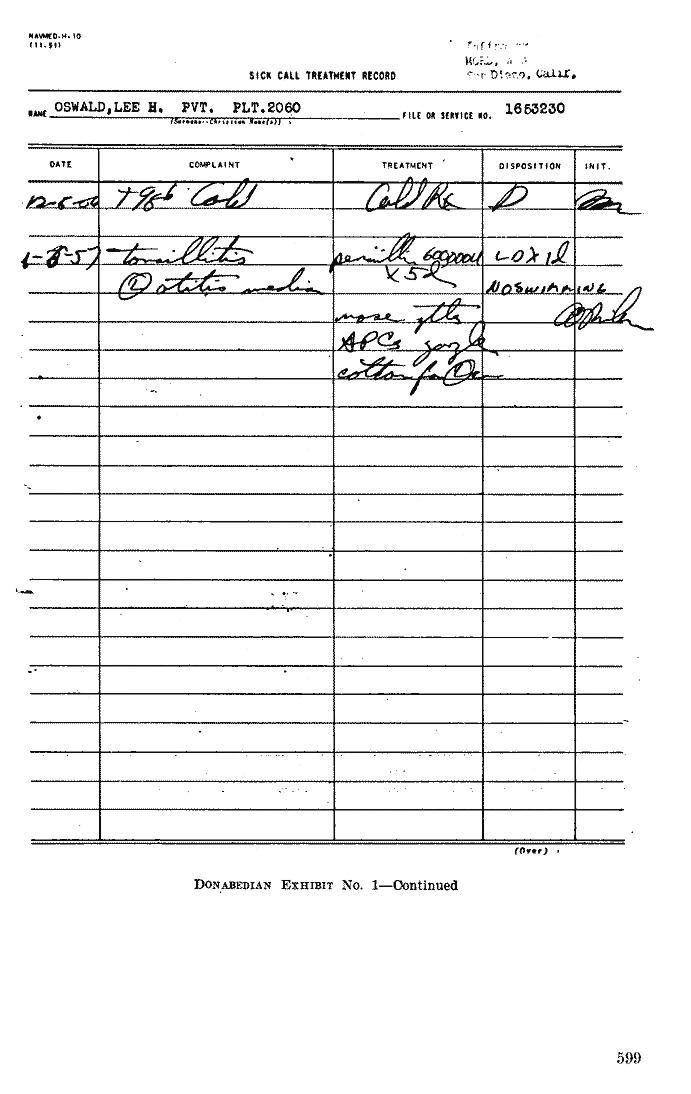 NAVMED-H-10
(11-51)
San Diego, Calif.
SICK CALL TREATMENT RECORD
NAME OSWALD,LEE H. PVT. PLT.2060 FILE OR SERVICE NO. 1653230
(Surname--Christian Name(s))
DATE COMPLAINT TREATMENT DISPOSITION INIT.
Cold Cold Rx D
tonsillitis penicillin 600000u LD X 1d
X 5d
otitis media NO SWIMMING
nose gtts
APCs gargle
cotton for
(Over)
DONABEDIAN EXHIBIT No. 1—Continued
599